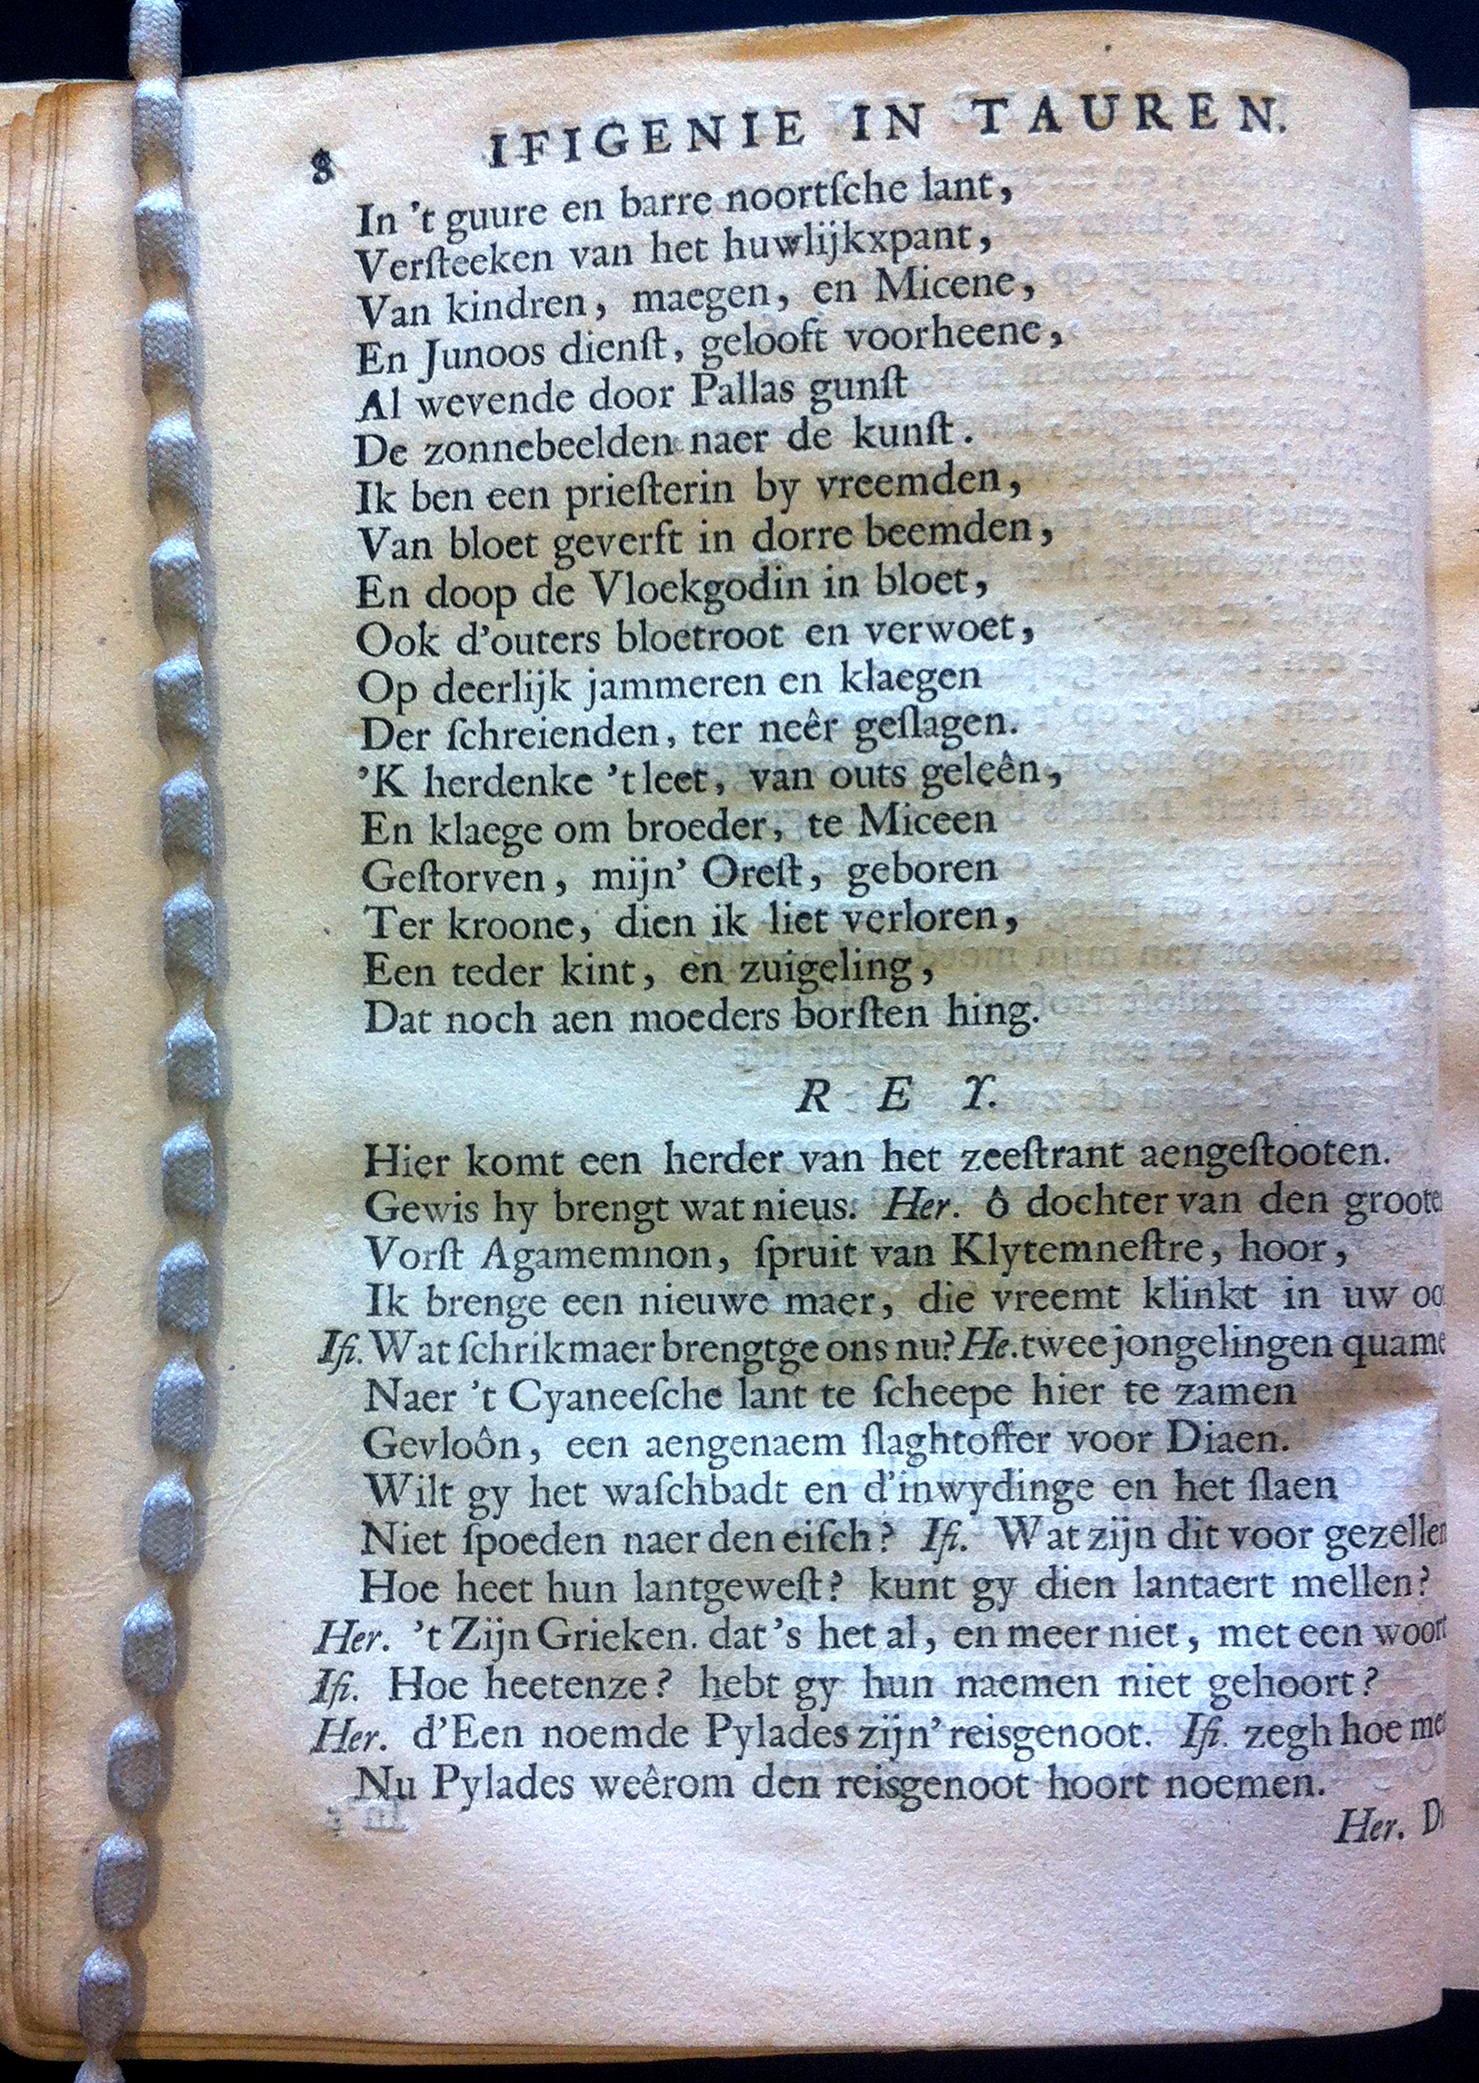 8 IFIGENIE IN TAUREN.
In 't guure en barre noortſche lant,
Verſteeken van het huwlijkxpant,
Van kindren, maegen, en Micene,
En Junoos dienſt, gelooft voorheene,
Al wevende door Pallas gunſt
De zonnebeelden naer de kunſt.
Ik ben een prieſterin by vreemden,
Van bloet geverft in dorre beemden,
En doop de Vloekgodin in bloet,
Ook d'outers bloetroot en verwoet,
Op deerlijk jammeren en klaegen
Der ſchreienden, ter neêr geſlagen.
'K herdenke 't leet, van outs geleên,
En klaege om broeder, te Miceen
Geſtorven, mijn' Oreſt, geboren
Ter kroone, dien ik liet verloren,
Een teder kint, en zuigeling,
Dat noch aen moeders borſten hing.
R E Y.
Hier komt een herder van het zeeſtrant aengeſtooten.
Gewis hy brengt wat nieus. Her. ô dochter van den groote
Vorſt Agamemnon, ſpruit van Klytemneſtre, hoor,
Ik brenge een nieuwe maer, die vreemt klinkt in uw oo
Ifi. Wat ſchrikmaer brengtge ons nu? He. twee jongelingen quame
Naer 't Cyaneeſche lant te ſcheepe hier te zamen
Gevloôn, een aengenaem ſlaghtoffer voor Diaen.
Wilt gy het waſchbadt en d'inwydinge en het ſlaen
Niet ſpoeden naer den eiſch? Ifi. Wat zijn dit voor gezellen
Hoe heet hun lantgeweſt? kunt gy dien lantaert mellen?
Her. 't Zijn Grieken. dat's het al, en meer niet, met een woort
Ifi. Hoe heetenze? hebt gy hun naemen niet gehoort?
Her. d'Een noemde Pylades zijn' reisgenoot. Ifi. zegh hoe me
Nu Pylades weêrom den reisgenoot hoort noemen.
Her. D